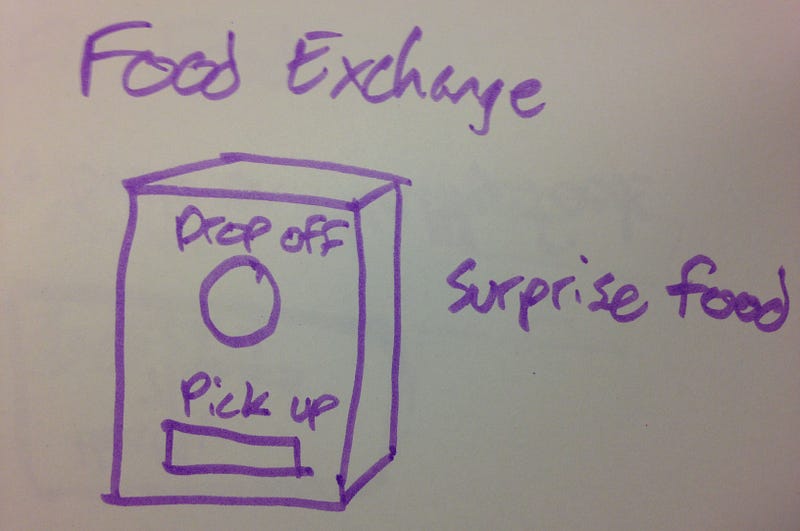 Food Exchange
Drop off
surprise food
Pick up